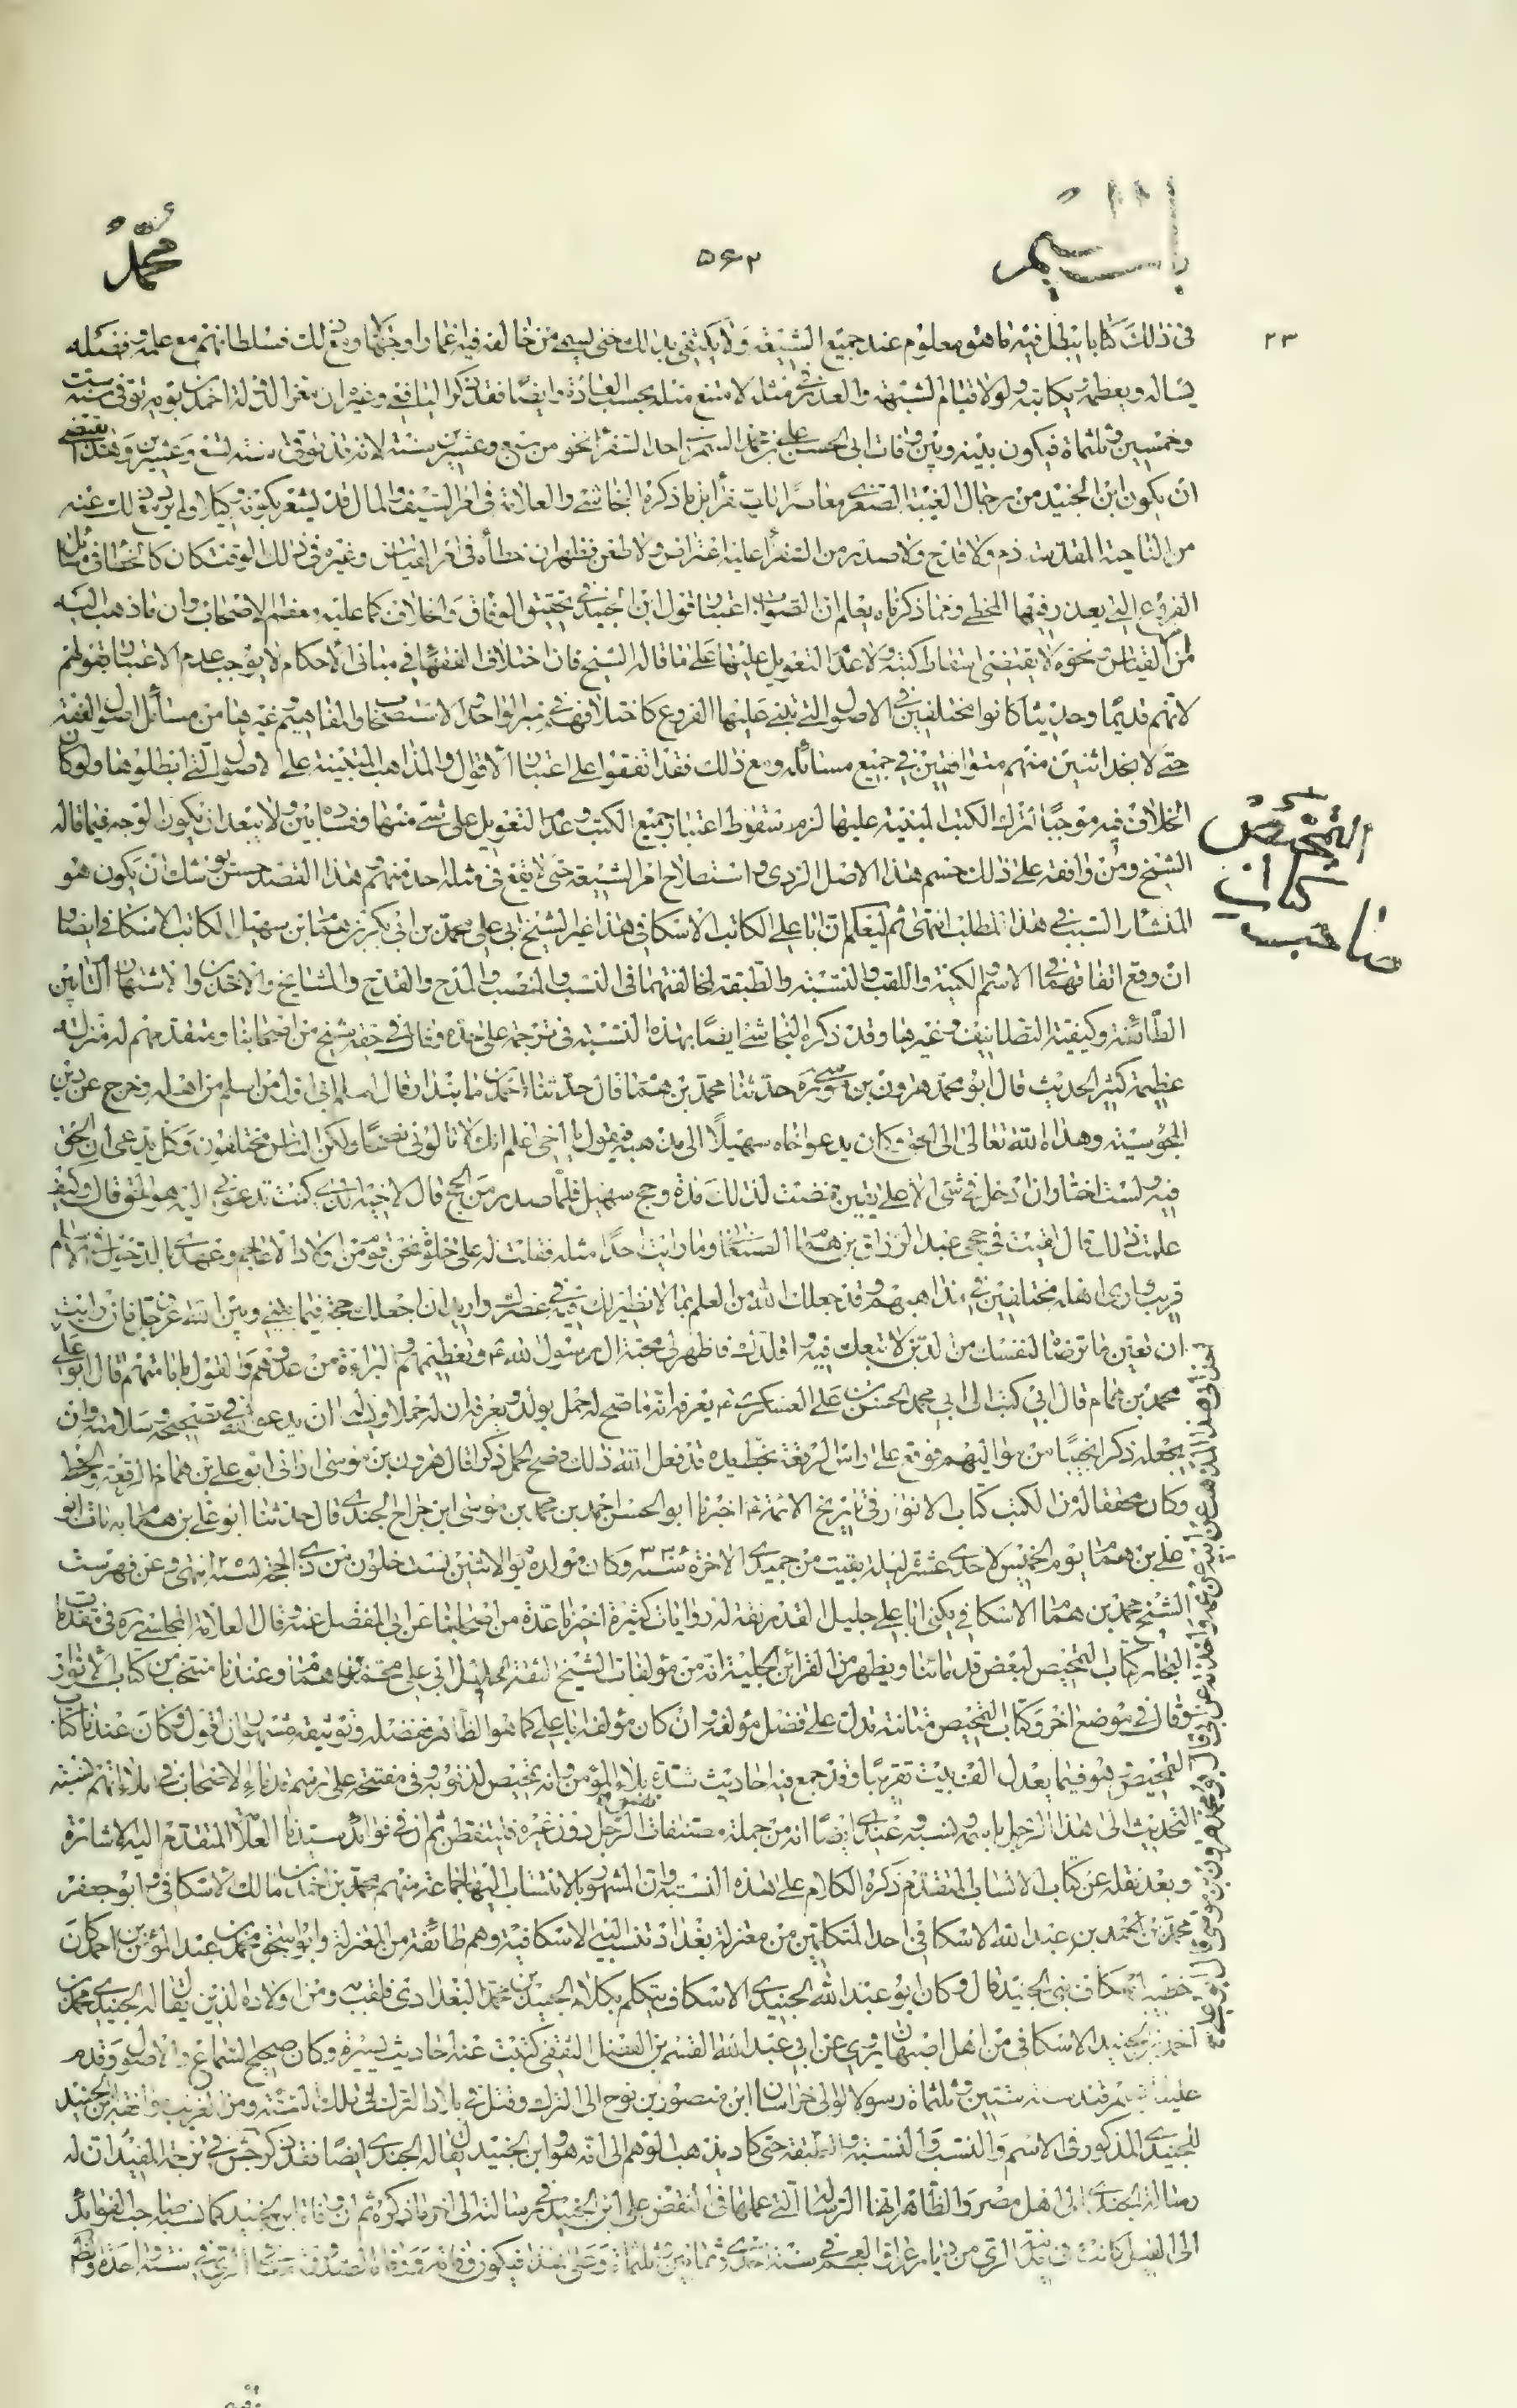 باب الميم
۵۶۲
محمّد
۲۳
في ذلك كتابا يبطل فيه ما هو معلوم عند جميع الشيعة ولا يكتفي بذلك حتى يسمي من خالفه فيه غمارا وجهالا ومع ذلك فسلطانهم مع علمه وفضله
يسأله ويعظمه بكاتبه ولولا قيام الشبهة والعذر في مثله لامتنع مثله بحسب العادة وايضا فقد ذكر اليافعي وغيره ان معز الدولة احمد بن بويه توفي سنة ست
وخمسين وثلثمائة فيكون بينه وبين وفات ابي الحسن علي بن محمد السمري احد السفراء نحو من سبع وعشرين سنة لانه قد توفي سنة تسع وعشرين وهذا يقتضي
ان يكون ابن الجنيد من رجال الغيبة الصغرى معاصرا بل ما ذكره النجاشي والعلامة في امر السيف والمال قد يشعر بكونه وكيلا ولم يرد مع ذلك عنه
من الناحية المقدسة ذم ولا قدح ولا صدر من السفراء عليه اعتراض ولا طعن فظهر ان خطأه في امر القياس وغيره في ذلك الوقت كان كالخطأ في مسائل
الفروع التي يعذر فيها المخطي ومما ذكرناه يعلم ان الصواب اعتبار قول ابن الجنيد في تحقيق الوفاق والخلاف كما عليه معظم الاصحاب وان ما ذهب اليه
من القياس ونحوه لا يقتضي اسقاط كتبه ولا عدم التعويل عليها على ما قاله الشيخ فان اختلاف الفقهاء في مباني الاحكام لا يوجب عدم الاعتبار بقولهم
لانهم قديما وحديثا كانوا مختلفين في الاصول التي تبنى عليها الفروع كاختلافهم في خبر الواحد والاستصحاب والمفاهيم وغيرها من مسائل اصول الفقه
حتى لا نجد اثنين منهم متوافقين في جميع مسائله ومع ذلك فقد اتفقوا على اعتبار الاقوال والمذاهب المبنية على الاصول التي ابطلوها ولو كان
الخلاف فيه موجبا لترك الكتب المبنية عليها لزم سقوط اعتبار جميع الكتب وعدم التعويل على شيء منها وفساده بين ولا يبعد ان يكون الوجه فيما قاله
الشيخ ومن وافقه على ذلك حسم هذا الاصل الردي واستصلاح امر الشيعة حتى لا يقع في مثله احد منهم وهذا القصد حسن يوشك ان يكون هو
المنشأ والسبب في هذا المطلب انتهى ثم ليعلم ان ابا علي الكاتب الاسكافي هذا غير الشيخ ابي علي محمد بن ابي بكر بن همام بن سهيل الكاتب الاسكافي ايضا
ان وقع اتفاقهما في الاسم والكنية واللقب والنسبة والطبقة لمخالفتهما في النسب والمنصب والمدح والقدح والمشايخ والاخذ والاشتهار بين
الطائفة وكيفية التصانيف وغيرها وقد ذكره النجاشي ايضا بهذه النسبة في ترجمة على حدة وقال في حقه شيخ من اصحابنا ومتقدمهم له منزلة
عظيمة كثير الحديث قال ابو محمد هرون بن موسى ره حدثنا محمد بن همام قال حدثنا احمد بن مابنداد قال اسلم ابي اول من اسلم من اهله وخرج عن دين
المجوسية وهداه الله تعالى الى الحق وكان يدعو اخاه سهيلا الى مذهبه فيقول يا اخي اعلم انك لا تألوني نصحا ولكن الناس مختلفون وكل يدعي ان الحق
فيه ولست اختار ان ادخل في شئ الا على يقين فمضت لذلك مدة وحج سهيل فلما صدر من الحج قال لاخيه الذي كنت تدعوني اليه هو الحق قال وكيف
علمت ذلك قال لقيت في حجي عبد الرزاق بن همام الصنعاني وما رايت احدا مثله فقلت له على خلوة نحن قوم من اولاد الاعاجم وعهدنا بالدخول في الاسلام
قريب وارى اهله مختلفين في مذاهبهم وقد جعلك الله من العلم بما لا نظير لك فيه في عصرك واريد ان اجعلك حجة فيما بيني وبين الله عز وجل فان رايت
ان تعين ما ترضاه لنفسك من الدين لاتبعك فيه واقلدك فاظهر لي محبة آل رسول الله ص وتعظيمهم والبراءة من عدوهم والقول بامامتهم قال ابو علي
محمد بن همام قال ابي كتب الى ابي محمد الحسن بن علي العسكري ع يعرفه انه ما صح له حمل بولد ويعرفه ان له حملا ويسأله ان يدعو الله في تصحيحه وسلامته وان
يجعله ذكرا نجيبا من مواليهم فوقع على راس الرقعة بخط يده قد فعل الله ذلك وصح الحمل ذكرا قال هرون بن موسى اراني ابو علي بن همام الرقعة والخط
وكان محققا له من الكتب كتاب الانوار في تاريخ الائمة ع اخبرنا ابو الحسن احمد بن محمد بن موسى ابن جراح الجندي قال حدثنا ابو علي بن همام به ومات ابو
علي بن همام يوم الخميس لاحدى عشرة ليلة بقيت من جميدي الاخرة سنة ۳۳۶ وكان مولده يوم الاثنين لست خلون من ذي الحجة سنة ۲۵۸ انتهى وعن فهرست
الشيخ محمد بن همام الاسكافي يكنى ابا علي جليل القدر ثقة له روايات كثيرة اخبرنا عدة من اصحابنا عن ابي المفضل عنه وقال العلامة المجلسي ره في مقدمات
البحار كتاب التمحيص لبعض قدمائنا ويظهر من القرائن الجلية انه من مؤلفات الشيخ الثقة الجليل ابي علي محمد بن همام وعندنا منتخب من كتاب الانوار
وقال في موضع اخر وكتاب التمحيص متانته تدل على فضل مؤلفه وان كان مؤلفه ابا علي كما هو الظاهر ففضله وتوثيقه مشهوران اقول وكان عندنا كتاب
التمحيص وهو فيما يعدل الف بيت تقريبا وقد جمع فيه احاديث شدة بلاء المؤمن وانه تمحيص لذنوبه وفي مفتتحه على رسم قدماء الاصحاب في املاءاتهم نسبة
التحديث الى هذا الرجل باسمه ونسبه وعندي ايضا انه من جملة مصنفات الرجل دون غيره فليتفطن ثم ان في فوائد سيدنا العلامة المتقدم اليه الاشارة
وبعد نقله عن كتاب الانساب المتقدم ذكره الكلام على هذه النسبة وان المشهور بالانتساب اليها جماعة منهم محمد بن احمد بن مالك الاسكافي وابو جعفر
محمد بن احمد بن عبد الله الاسكافي احد المتكلمين من معتزلة بغداد تنسب اليه الاسكافية وهم طائفة من المعتزلة وابو اسحق محمد بن عبد المؤمن بن احمد كان
خطيب اسكاف بني الجنيد قال وكان ابو عبد الله الجنيدي الاسكاف يتكلم بكلام الجنيد بن محمد البغدادي فلقب به ومن اولاده الذين يقال له الجنيدي محمد بن
احمد بن الجنيد الاسكافي من اهل اصبهان يروي عن ابي عبد الله القسم بن الفضل الثقفي كتبت عنه احاديث يسيرة وكان صحيح السماع والاصول وقدم
علينا سمرقند سنة ستين وثلثمائة رسولا لوالي خراسان ابن منصور بن نوح الى الترك وقتل في بلاد الترك في تلك السنة ومن الغريب موافقة ابن الجنيد
للجنيدي المذكور في الاسم والنسب والنسبة والطبقة حتى كاد يذهب الوهم الى انه هو وابن الجنيد يقال له الجندي ايضا فقد ذكر جش في ترجمة المفيد ان له
رسالة الجندي الى اهل مصر والظاهر انها الرسالة التي عملها في النقض على ابن الجنيد في رسالته الى اخر ما ذكره ثم ان وفاة ابن الجنيد كما نسبه صاحب الفوائد
الى القيل كانت في بلدة الري من ديار عراق العجم في سنة احدى وثمانين وثلثمائة وعلى هذا فيكون وفاته ووفاة الصدوق معا في الري في سنة واحدة
التمحيص
كتاب
صاحب